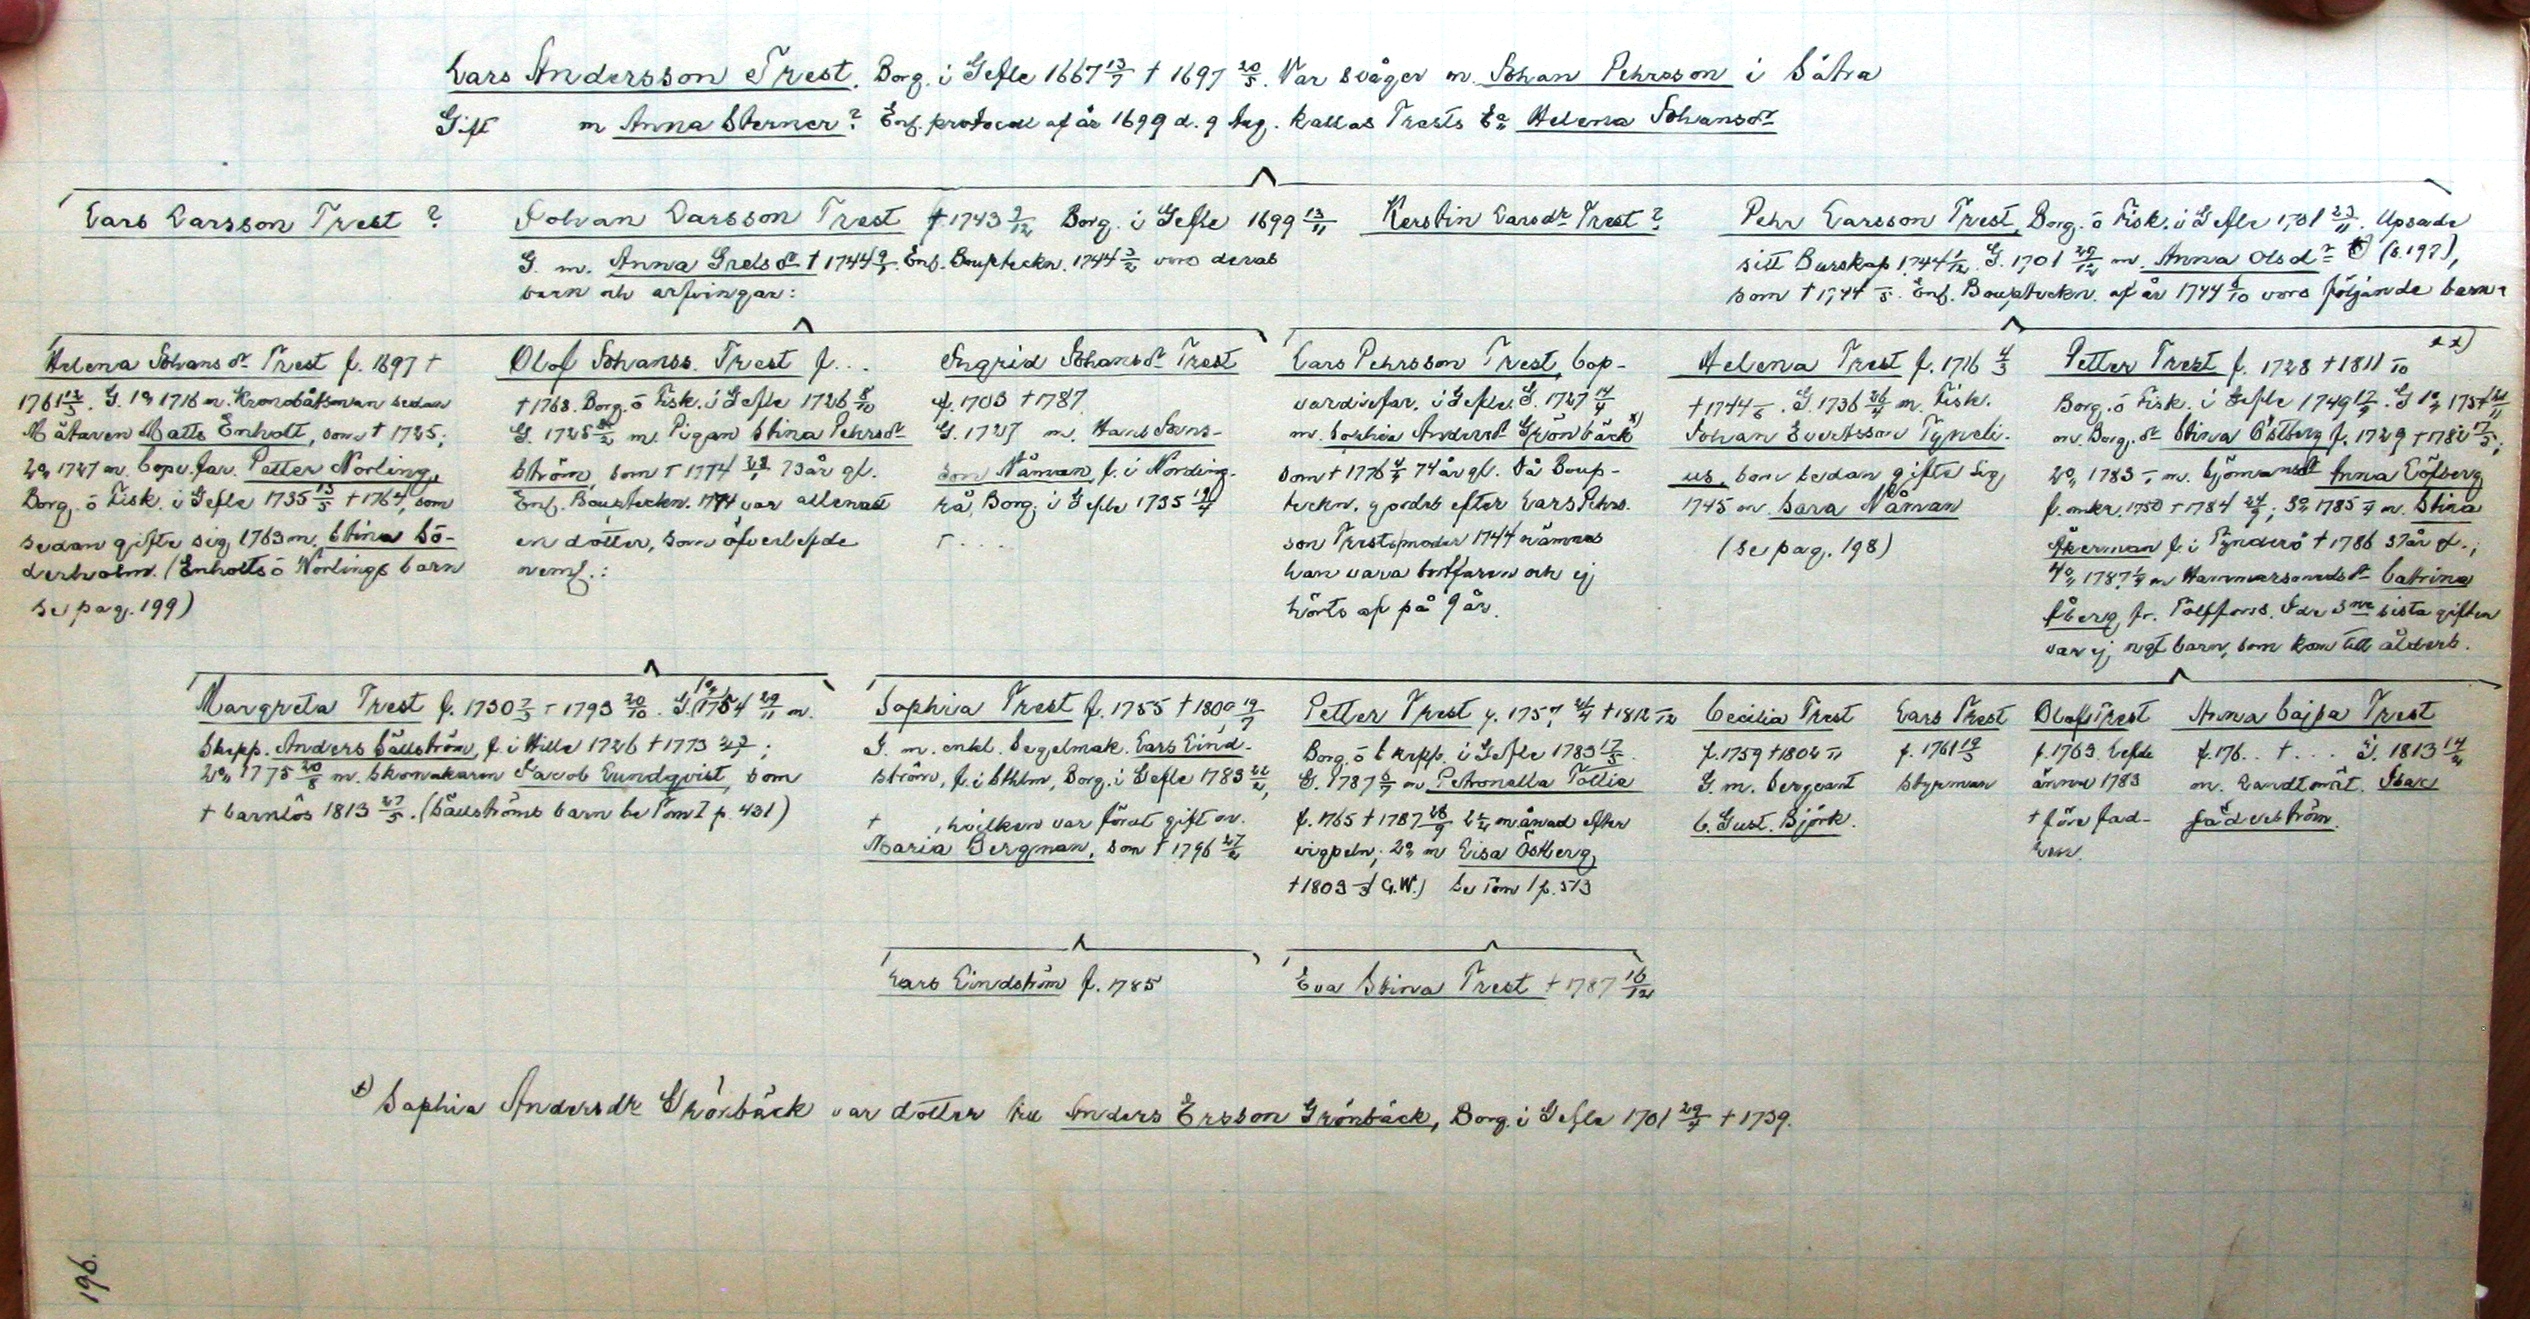 Lars Andersson Trest. Borg. i Gefle 1667 13/7 † 1697 20/5. Var svåger m. Johan Pehrsson i Sätra
Gift m Anna Sterner? Enl. protocoll af år 1699 d. 9 Aug. kallas Trests Ea Helena Johansdr
Lars Larsson Trest ?
Johan Larsson Trest † 1743 9/12 Borg. i Gefle 1699 13/11
G. m. Anna Grelsdr † 1744 9/1. Enl. Bouptekn. 1744 3/2 voro deras
barn och arfvingar:
Kerstin Larsdr Trest ?
Pehr Larsson Trest, Borg. ö Fisk. i Gefle 1701 23/11. Upsade
sitt Burskap 1744 1/12. G. 1701 29/12 m. Anna Olsdr (s. 197),
som † 1744 /5. Enl. Bouptekn. af år 1744 6/10 voro följande barn:
Helena Johansdr Trest f. 1697 †
1761 12/3. G. 1o 1716 m. Kronobåtsman sedan
Mätaren Matts Enholt, som † 1725;
2o 1727 m. Copv.far. Petter Norling,
Borg. ö Fisk. i Gefle 1735 13/5 † 1764, som
sedan gifte sig 1763 m. Stina Sö-
derholm. (Enholts ö Norlings barn
se pag. 199)
Olof Johanss. Trest f. . .
† 1768. Borg. ö Fisk. i Gefle 1726 8/10
G. 1725 /2 m. Pigan Stina Pehrsdr
Ström, som † 1774 /1 73 år gl.
Enl. Bouptekn. 1774 var allenast
en dotter, som öfverlefde
neml.:
Ingrid Johansdr Trest
f. 1703 † 1787
G. 1727 m. Hans Jöns-
son Nåman f. i Nording-
rå, Borg. i Gefle 1735 19/4
† . . .
Lars Pehrsson Trest, Cop-
vardiefar. i Gefle. G. 1727 14/4
m. Sophia Andersdr Grönbäck x)
som † 1776 4/7 74 år gl. Då Boup-
tekn. gjordes efter Lars Pehrs-
son Trests moder 1744 nämnes
han vara bortfaren och ej
hörts af på 9 år.
Helena Trest f. 1716 4/3
† 1744 /6. G. 1736 26/4 m. Fisk.
Johan Evertsson Tyneli-
us, som sedan gifte sig
1745 m. Sara Nåman
(se pag. 198)
Petter Trest f. 1728 † 1811 /10 xx)
Borg. ö Fisk. i Gefle 1749 12/9. G 1o 1754 /11
m. Borg. dr Stina Östberg f. 1729 † 1782 17/5;
2o 1783 m. Sjömansdr Anna Löfberg
f. omkr. 1750 † 1784 24/7; 3o 1785 m. Stina
Åkerman f. i Tynderö † 1786 37 år g.;
4o 1787 m Hammarsmedsdr Catrina
Åberg fr. Tolffors. I de 3ne sista giften
var ej ngt barn, som kom till ålders.
Margreta Trest f. 1730 7/3 † 1793 20/10. G. 1o 1754 29/11 m.
Skepp. Anders Sällström, f. i Hille 1726 † 1773 ;
2o 1775 20/8 m. Skomakaren Jacob Lundqvist, som
† barnlös 1813 27/5. (Sällströms barn se Tom I p. 431)
Sophia Trest f. 1755 † 1800 19/7
G. m. enkl. Segelmak. Lars Lind-
ström, f. i Sthlm, Borg. i Gefle 1783 22/2,
† , hvilken var förut gift m.
Maria Bergman, som † 1796 27/2
Petter Trest f. 1757 /4 † 1812 /12
Borg. ö Skepp. i Gefle 1783 17/5.
G. 1787 6/7 m. Petronella Tollia
f. 1765 † 1787 28/9 2 1/2 månad efter
vigseln; 2o m Lisa Östberg
† 1803 (G.W.) Se Tom I p. 513
Cecilia Trest
f. 1759 † 1802 /11
G. m. Sergeant
C. Gust. Björk.
Lars Trest
f. 1761 19/3
styrman
Olof Trest
f. 1763. Lefde
ännu 1783
† före fad-
ren.
Anna Cajsa Trest
f. 176. . † . . . G. 1813 14/2
m. Landtmät. Isac
Fäderström.
Lars Lindström f. 1785
Eva Stina Trest † 1787 16/12
x) Sophia Andersdr Grönbäck var dotter till Anders Ersson Grönbäck, Borg. i Gefle 1701 29/7 † 1739.
196.